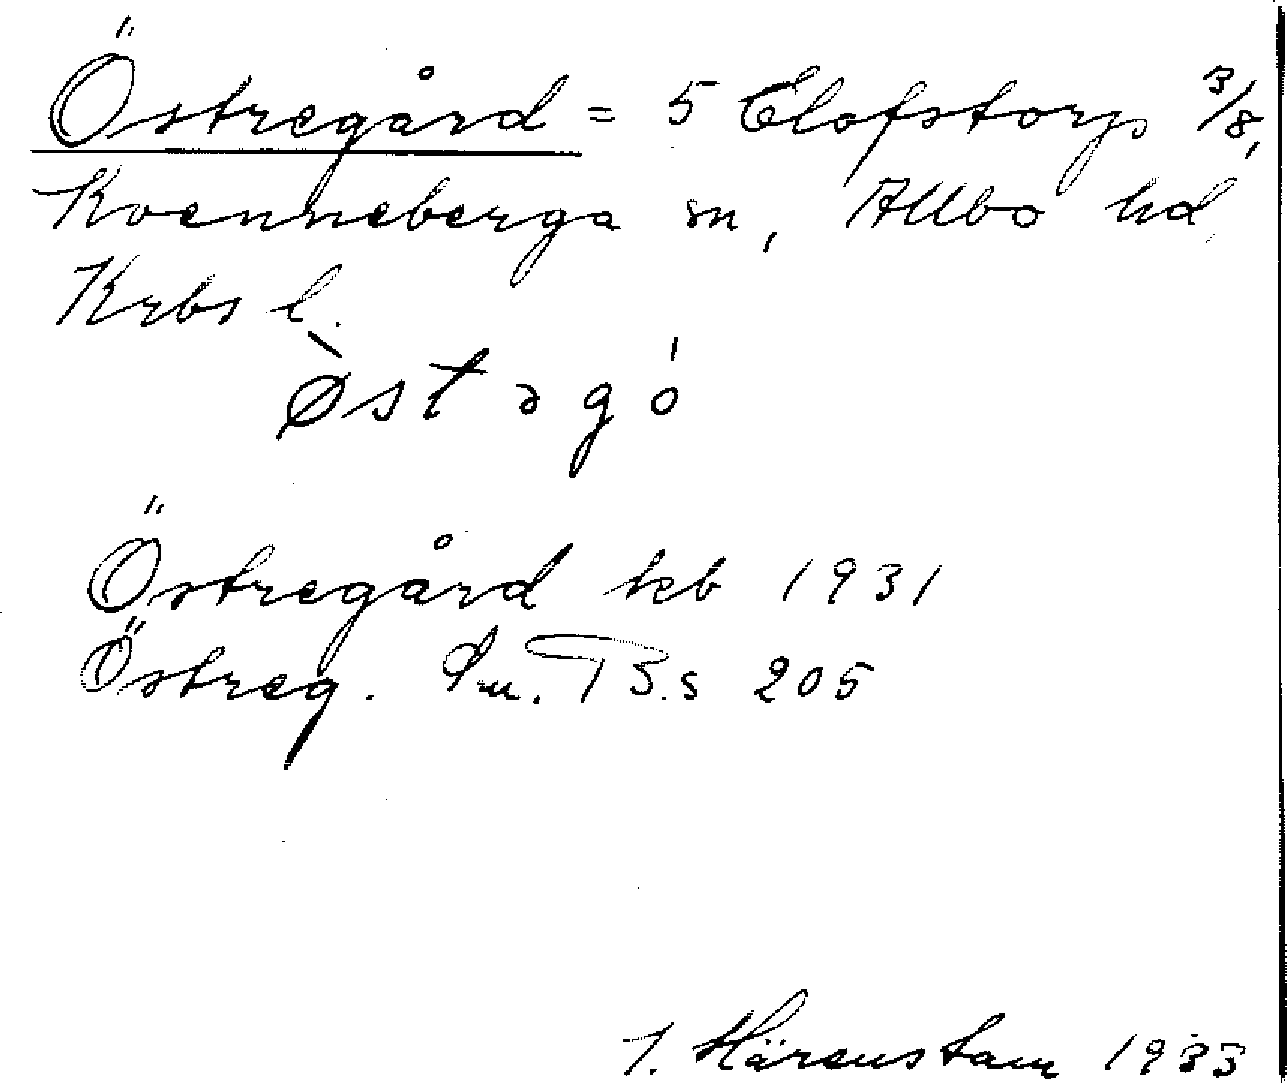 Östregård = 5 Elofstorp 3/8,
Kvenneberga sn, Allbo hd,
Krbs l.
ø̀stəgó
Östregård kb 1931
Östreg. Sm. TB.s 205
J. Härenstam 1933